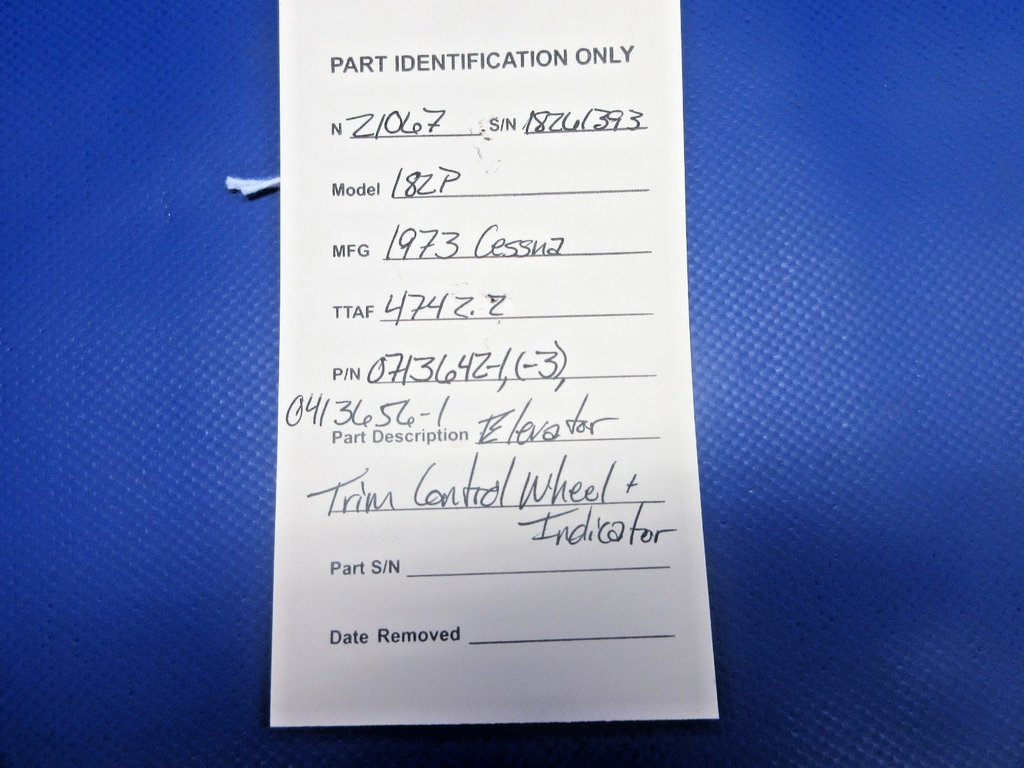 PART IDENTIFICATION ONLY
N 21067 S/N 18261393
Model 182P
MFG 1973 Cessna
TTAF 4742.2
P/N 0713642-1, (-3),
0413656-1
Part Description Elevator
Trim Control Wheel +
Indicator
Part S/N
Date Removed